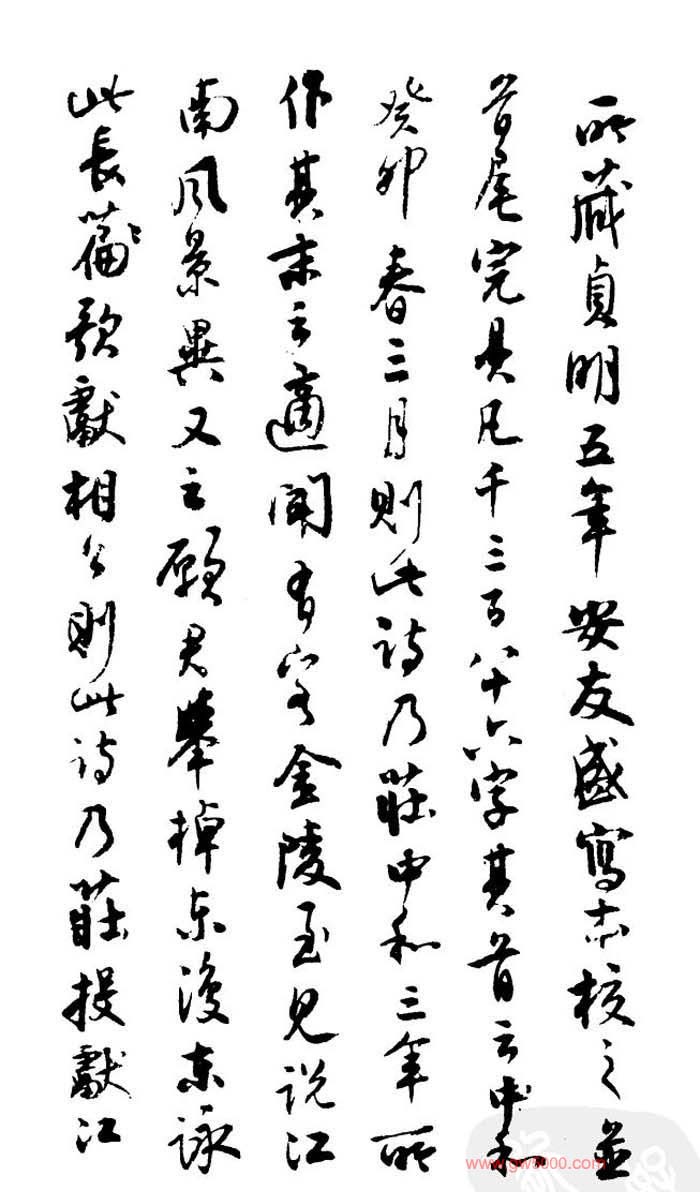 所藏貞明五年安友盛寫本校之並
首尾完具凡千三百八十六字其首云中和
癸卯春三月則此詩乃莊中和三年所
作其末云適聞有客金陵至見說江
南風景異又云願君舉棹東復東詠
此長篇歌獻相公則此詩乃莊投獻江
www.gw5000.com